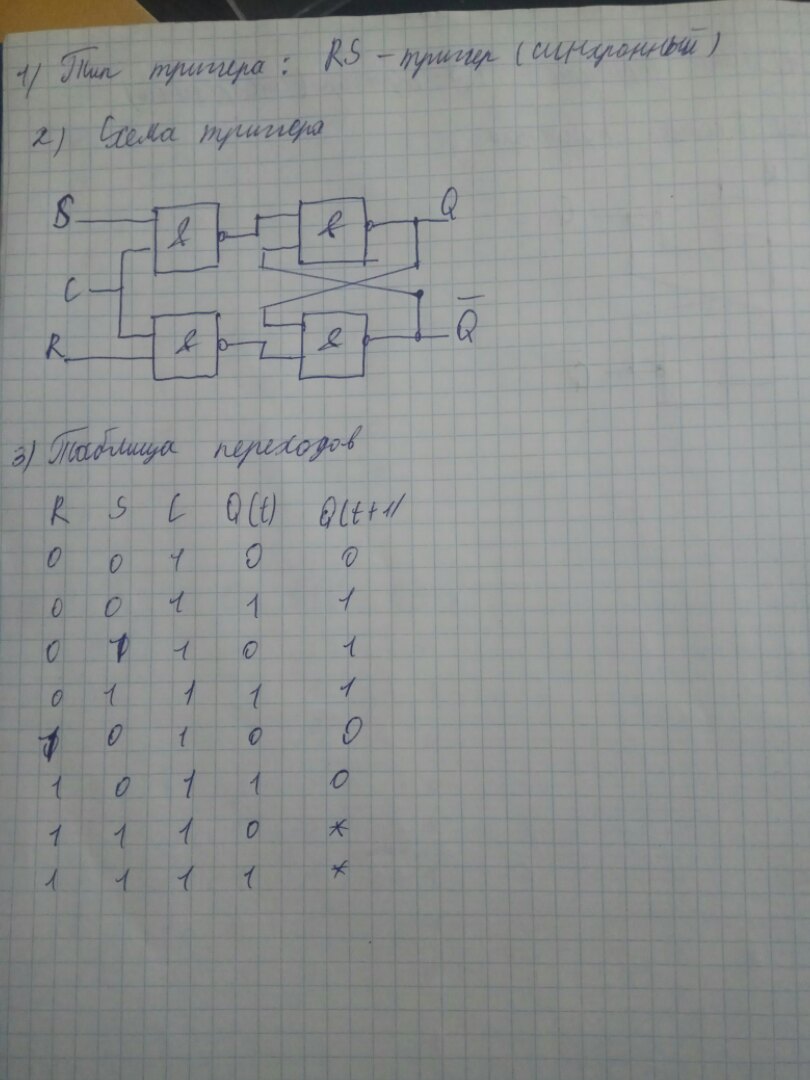 1) Тип триггера: RS - триггер (синхронный)
2) Схема триггера
S & & Q
C
R & & Q̅
3) Таблица переходов
R S C Q(t) Q(t+1)
0 0 1 0 0
0 0 1 1 1
0 1 1 0 1
0 1 1 1 1
1 0 1 0 0
1 0 1 1 0
1 1 1 0 *
1 1 1 1 *